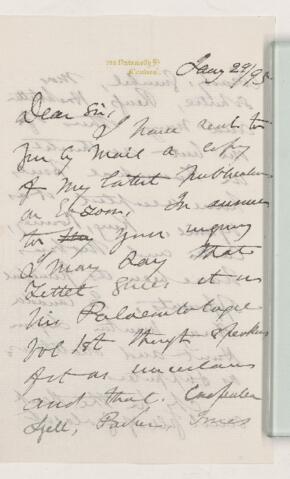 University St
Jany 29/95
Dear Sir,
I have sent to
you by Mail a copy
of my latest publication
on Eozoon. In answer
to your inquiry
I may say that
Zittel gives it in
his Palaeontologie
Vol 1st though speaks
of it as uncertain
and that Carpenter
Jones